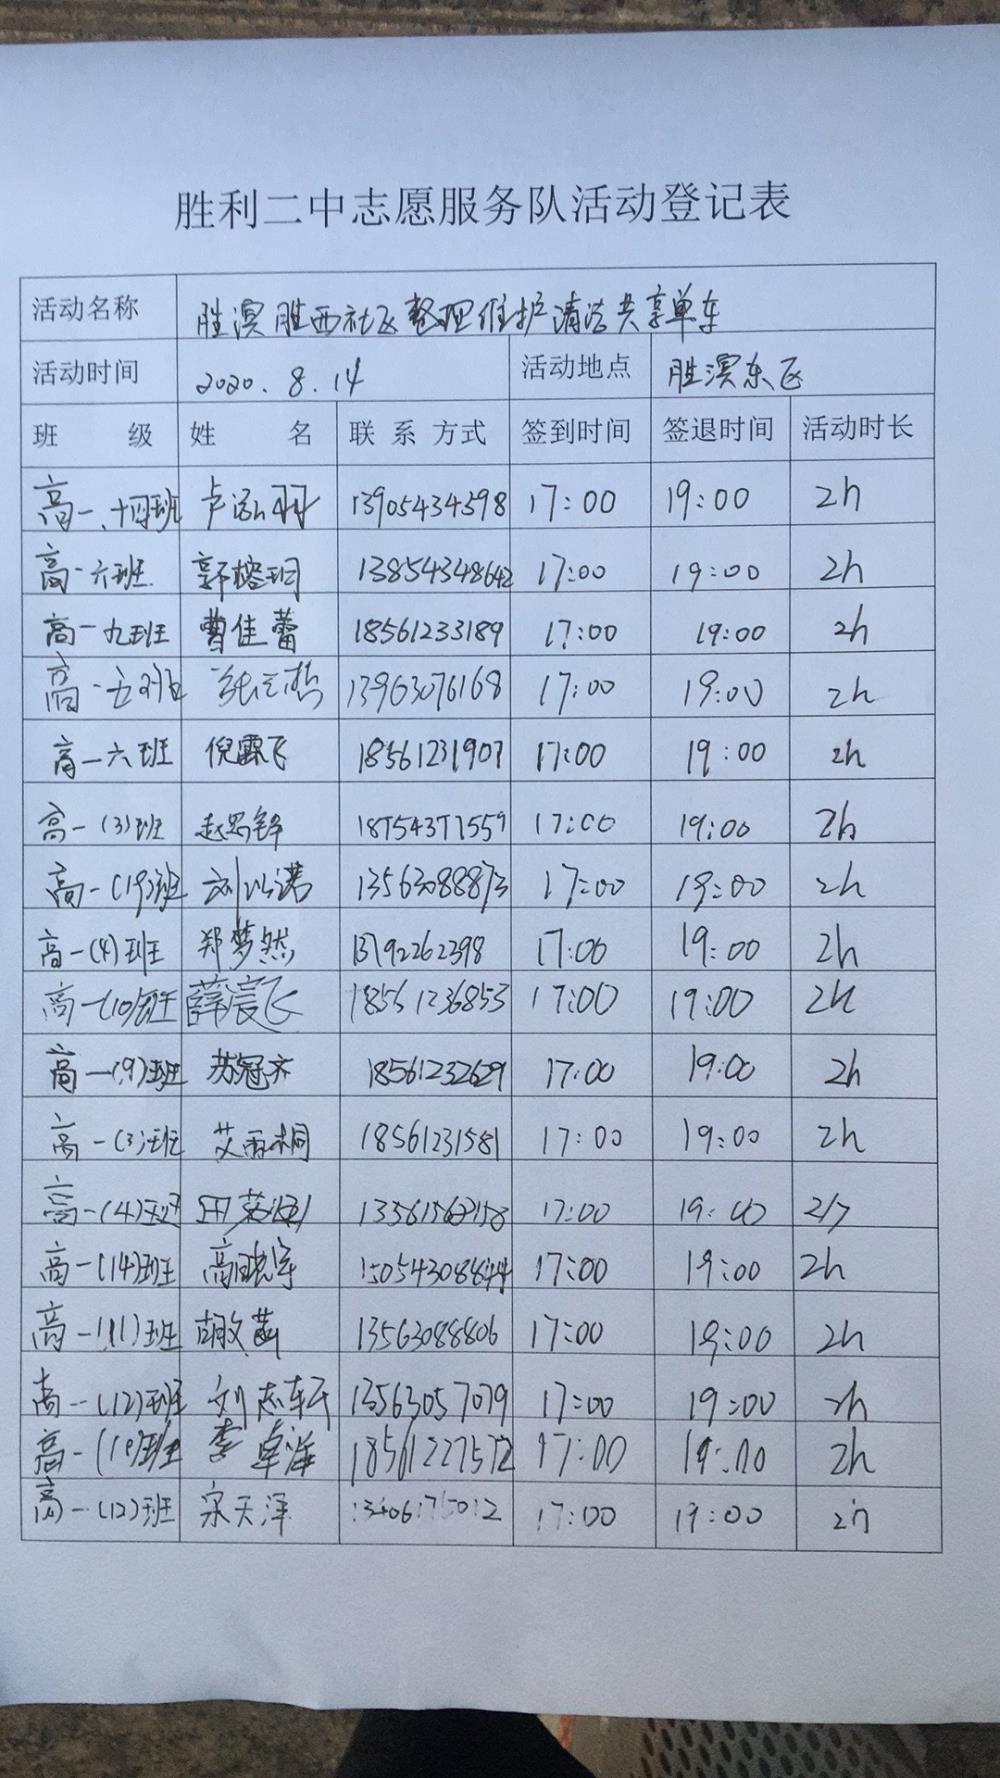 胜利二中志愿服务队活动登记表
活动名称 胜滨胜西社区整理维护清洁共享单车
活动时间 2020.8.14 活动地点 胜滨东区
班 级 姓 名 联系方式 签到时间 签退时间 活动时长
高一十四班 卢 13905434598 17:00 19:00 2h
高一六班 郭榕玥 13854348642 17:00 19:00 2h
高一九班 曹佳蕾 18561233189 17:00 19:00 2h
高一五班 张 13963076168 17:00 19:00 2h
高一六班 倪霖飞 18561231907 17:00 19:00 2h
高一(3)班 赵 18754371559 17:00 19:00 2h
高一(19)班 刘以诺 13563088873 17:00 19:00 2h
高一(4)班 郑梦然 13792262398 17:00 19:00 2h
高一(10)班 薛震飞 18561236853 17:00 19:00 2h
高一(9)班 苏冠齐 18561232629 17:00 19:00 2h
高一(3)班 艾雨桐 18561231581 17:00 19:00 2h
高一(4)班 17:00 19:00 2h
高一(14)班 高晓宇 15054308844 17:00 19:00 2h
高一(11)班 胡文菡 13563088806 17:00 19:00 2h
高一(12)班 刘志轩 13563057079 17:00 19:00 2h
高一(10)班 李卓洋 18561227572 17:00 19:00 2h
高一(12)班 宋天泽 17:00 19:00 2h